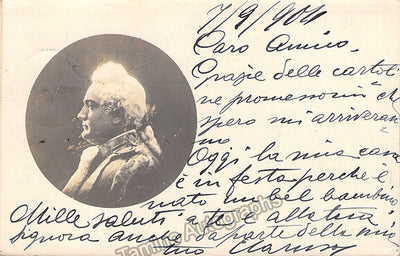 7/9/904
Caro Amico.
Grazie delle cartoli
ne promessomi che
spero mi arriveran
no
Oggi la mia casa
è in festa perchè è
nato un bel bambino
Mille saluti a te e alla tua
signora anche da parte della mia
tuo Caruso
Tamino Autographs